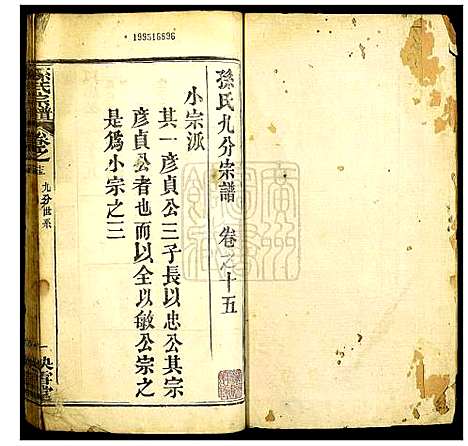 199515696
孫氏九分宗譜 卷之十五
小宗派
其一彥貞公三子長以忠公其宗
彥貞公者也而以全以敏公宗之
是為小宗之三
孫氏宗譜 卷之
九分世系
映雪堂